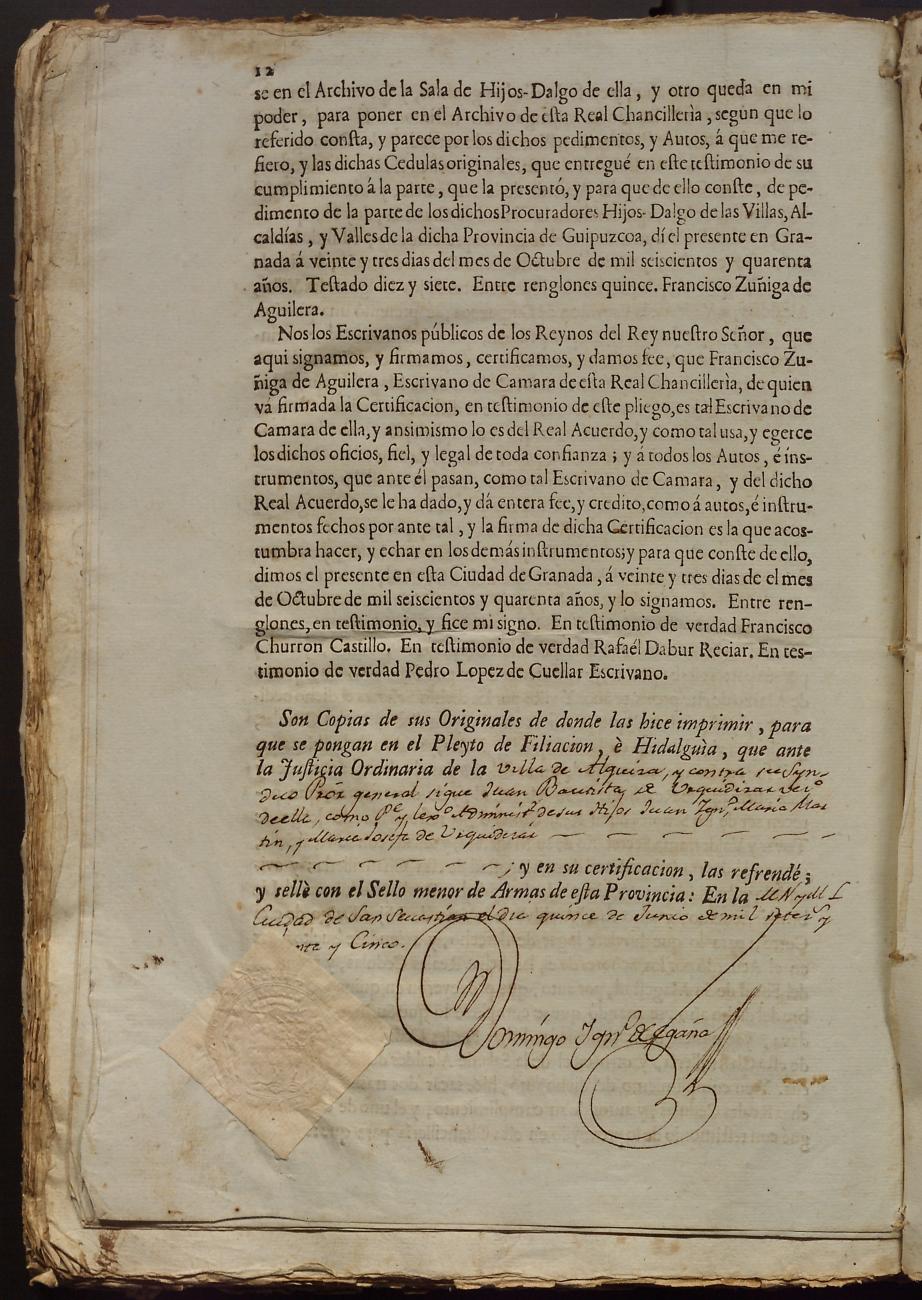 12
se en el Archivo de la Sala de Hijos-Dalgo de ella, y otro queda en mi
poder, para poner en el Archivo de esta Real Chancilleria, segun que lo
referido consta, y parece por los dichos pedimentos, y Autos, á que me re-
fiero, y las dichas Cedulas originales, que entregué en este testimonio de su
cumplimiento á la parte, que la presentó, y para que de ello conste, de pe-
dimento de la parte de los dichos Procuradores Hijos-Dalgo de las Villas, Al-
caldías, y Valles de la dicha Provincia de Guipuzcoa, dí el presente en Gra-
nada á veinte y tres dias del mes de Octubre de mil seiscientos y quarenta
años. Testado diez y siete. Entre renglones quince. Francisco Zuñiga de
Aguilera.
Nos los Escrivanos públicos de los Reynos del Rey nuestro Señor, que
aqui signamos, y firmamos, certificamos, y damos fee, que Francisco Zu-
ñiga de Aguilera, Escrivano de Camara de esta Real Chancilleria, de quien
vá firmada la Certificacion, en testimonio de este pliego, es tal Escrivano de
Camara de ella, y ansimismo lo es del Real Acuerdo, y como tal usa, y egerce
los dichos oficios, fiel, y legal de toda confianza; y á todos los Autos, é ins-
trumentos, que ante él pasan, como tal Escrivano de Camara, y del dicho
Real Acuerdo, se le ha dado, y dá entera fee, y credito, como á autos, é instru-
mentos fechos por ante tal, y la firma de dicha Certificacion es la que acos-
tumbra hacer, y echar en los demás instrumentos; y para que conste de ello,
dimos el presente en esta Ciudad de Granada, á veinte y tres dias de el mes
de Octubre de mil seiscientos y quarenta años, y lo signamos. Entre ren-
glones, en testimonio, y fice mi signo. En testimonio de verdad Francisco
Churron Castillo. En testimonio de verdad Rafaél Dabur Reciar. En tes-
timonio de verdad Pedro Lopez de Cuellar Escrivano.
Son Copias de sus Originales de donde las hice imprimir, para
que se pongan en el Pleyto de Filiacion, è Hidalguìa, que ante
la Justicia Ordinaria de la Villa de Alqueiza, y contra su Syn-
dico Pror general sigue Juan Bautista de Urquidizar vecº
de ella, como Pe y lexº Administr de sus Hijos Juan Ignº, Maria Mar
tin, y Maria Josefa de Urquidizar
; y en su certificacion, las refrendé;
y sellè con el Sello menor de Armas de esta Provincia: En la M N y M L
Ciudad de San Sevastian el dia quince de Junio de mil setecs y
nta y Cinco.
Domingo Ignº de Egaña